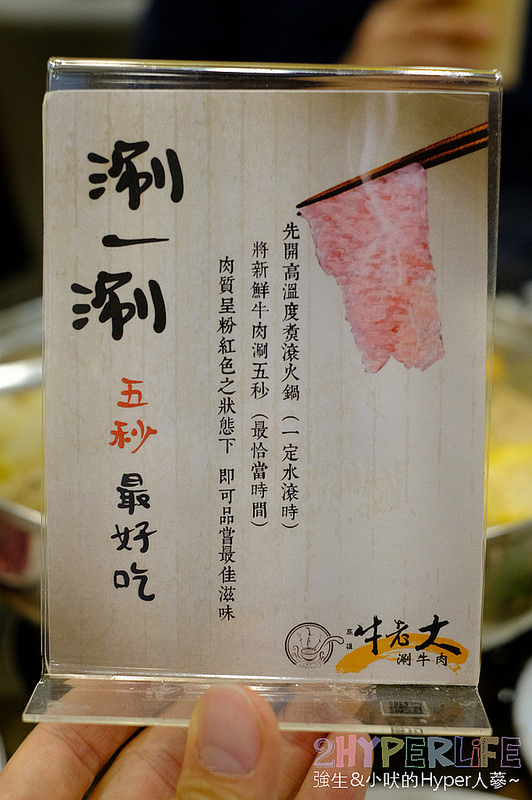 涮一涮
五秒
最好吃
先開高溫度煮滾火鍋（一定水滾時）
將新鮮牛肉涮五秒（最恰當時間）
肉質呈粉紅色之狀態下 即可品嘗最佳滋味
高雄
牛老大
涮牛肉
2HYPERLIFE
強生&小吠的Hyper人蔘~